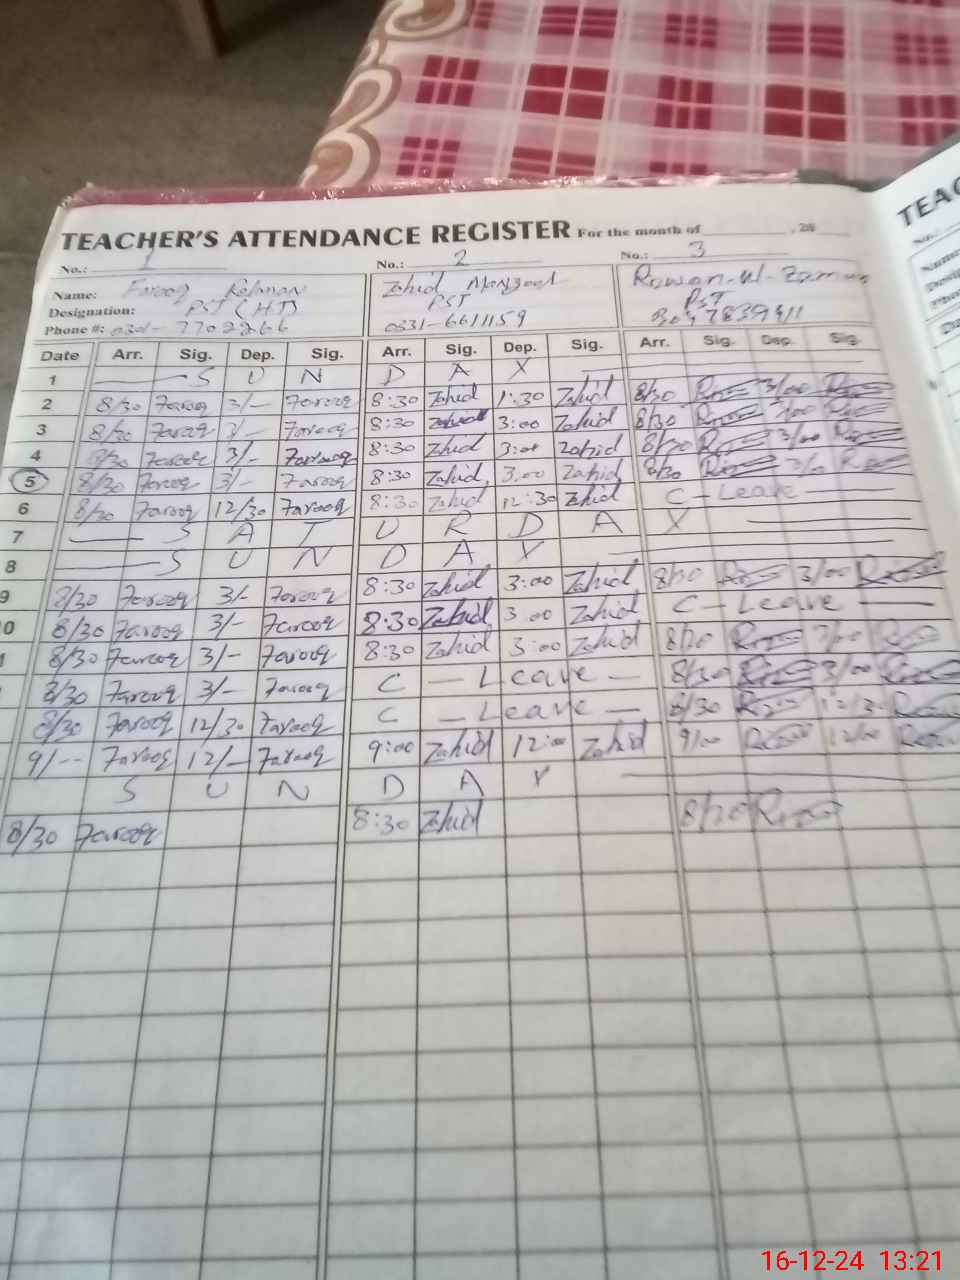 TEACHER'S ATTENDANCE REGISTER For the month of , 20
TEAC
No.: 1 No.: 2 No.: 3
Name: Farooq Rehman Zahid Manzoor
Designation: PST (HT) PST PST
Phone #: 0301-7702266 0331-6611159
Date Arr. Sig. Dep. Sig. Arr. Sig. Dep. Sig. Arr. Sig. Dep. Sig.
1 S U N D A Y
2 8/30 Farooq 3/- Farooq 8:30 Zahid 1:30 Zahid 8/30 3/00
3 8/30 Farooq 3/- Farooq 8:30 Zahid 3:00 Zahid 8/30 3/00
4 8/30 Farooq 3/- Farooq 8:30 Zahid 3:00 Zahid 8/30 3/00
5 8/30 Farooq 3/- Farooq 8:30 Zahid 3:00 Zahid 8/30 3/00
6 8/30 Farooq 12/30 Farooq 8:30 Zahid 12:30 Zahid C - Leave
7 S A T U R D A Y
8 S U N D A Y
9 8/30 Farooq 3/- Farooq 8:30 Zahid 3:00 Zahid 8/30 3/00
0 8/30 Farooq 3/- Farooq 8:30 Zahid 3:00 Zahid C - Leave
8/30 Farooq 3/- Farooq 8:30 Zahid 3:00 Zahid 8/30 3/00
8/30 Farooq 3/- Farooq C - Leave - 8/30 3/00
8/30 Farooq 12/30 Farooq C - Leave - 8/30 12/30
9/-- Farooq 12/- Farooq 9:00 Zahid 12:00 Zahid 9/00 12/00
S U N D A Y
8/30 Farooq 8:30 Zahid 8/30
16-12-24 13:21